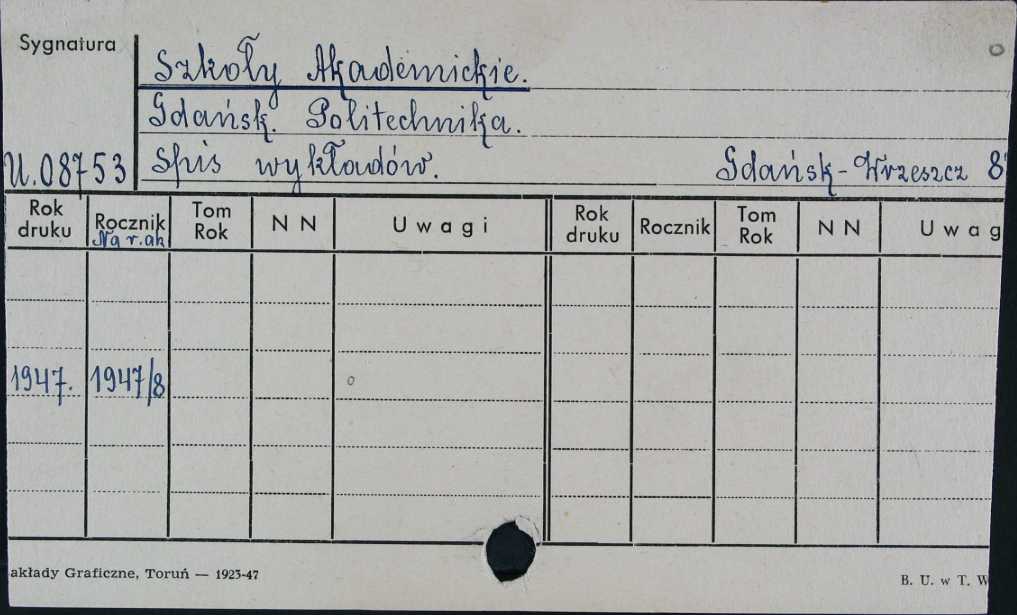 Sygnatura
Szkoły Akademickie.
Gdańsk. Politechnika.
U.08753 Spis wykładów. Gdańsk-Wrzeszcz 8°
Rok druku Rocznik Na r.ak Tom Rok N N Uwagi Rok druku Rocznik Tom Rok N N Uwag
1947. 1947/8
akłady Graficzne, Toruń — 1923-47 B. U. w T. W